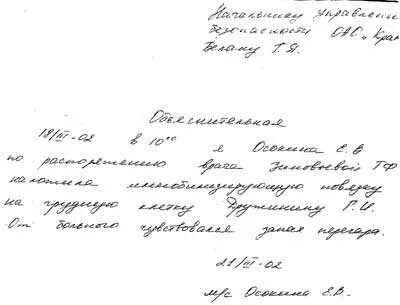 Начальнику Управлени
Безопасности ОАО „Крас
Белану Г.Я.
Объяснительная
18/III-02 в 10⁰⁰ я Осокина Е.В
по распоряжению врача Зиновьевой ТФ
наложила иммобилизирующую повязку
на грудную клетку Дружинину Г.И.
От больного чувствовался запах перегара.
21/III-02
м/с Осокина Е.В.